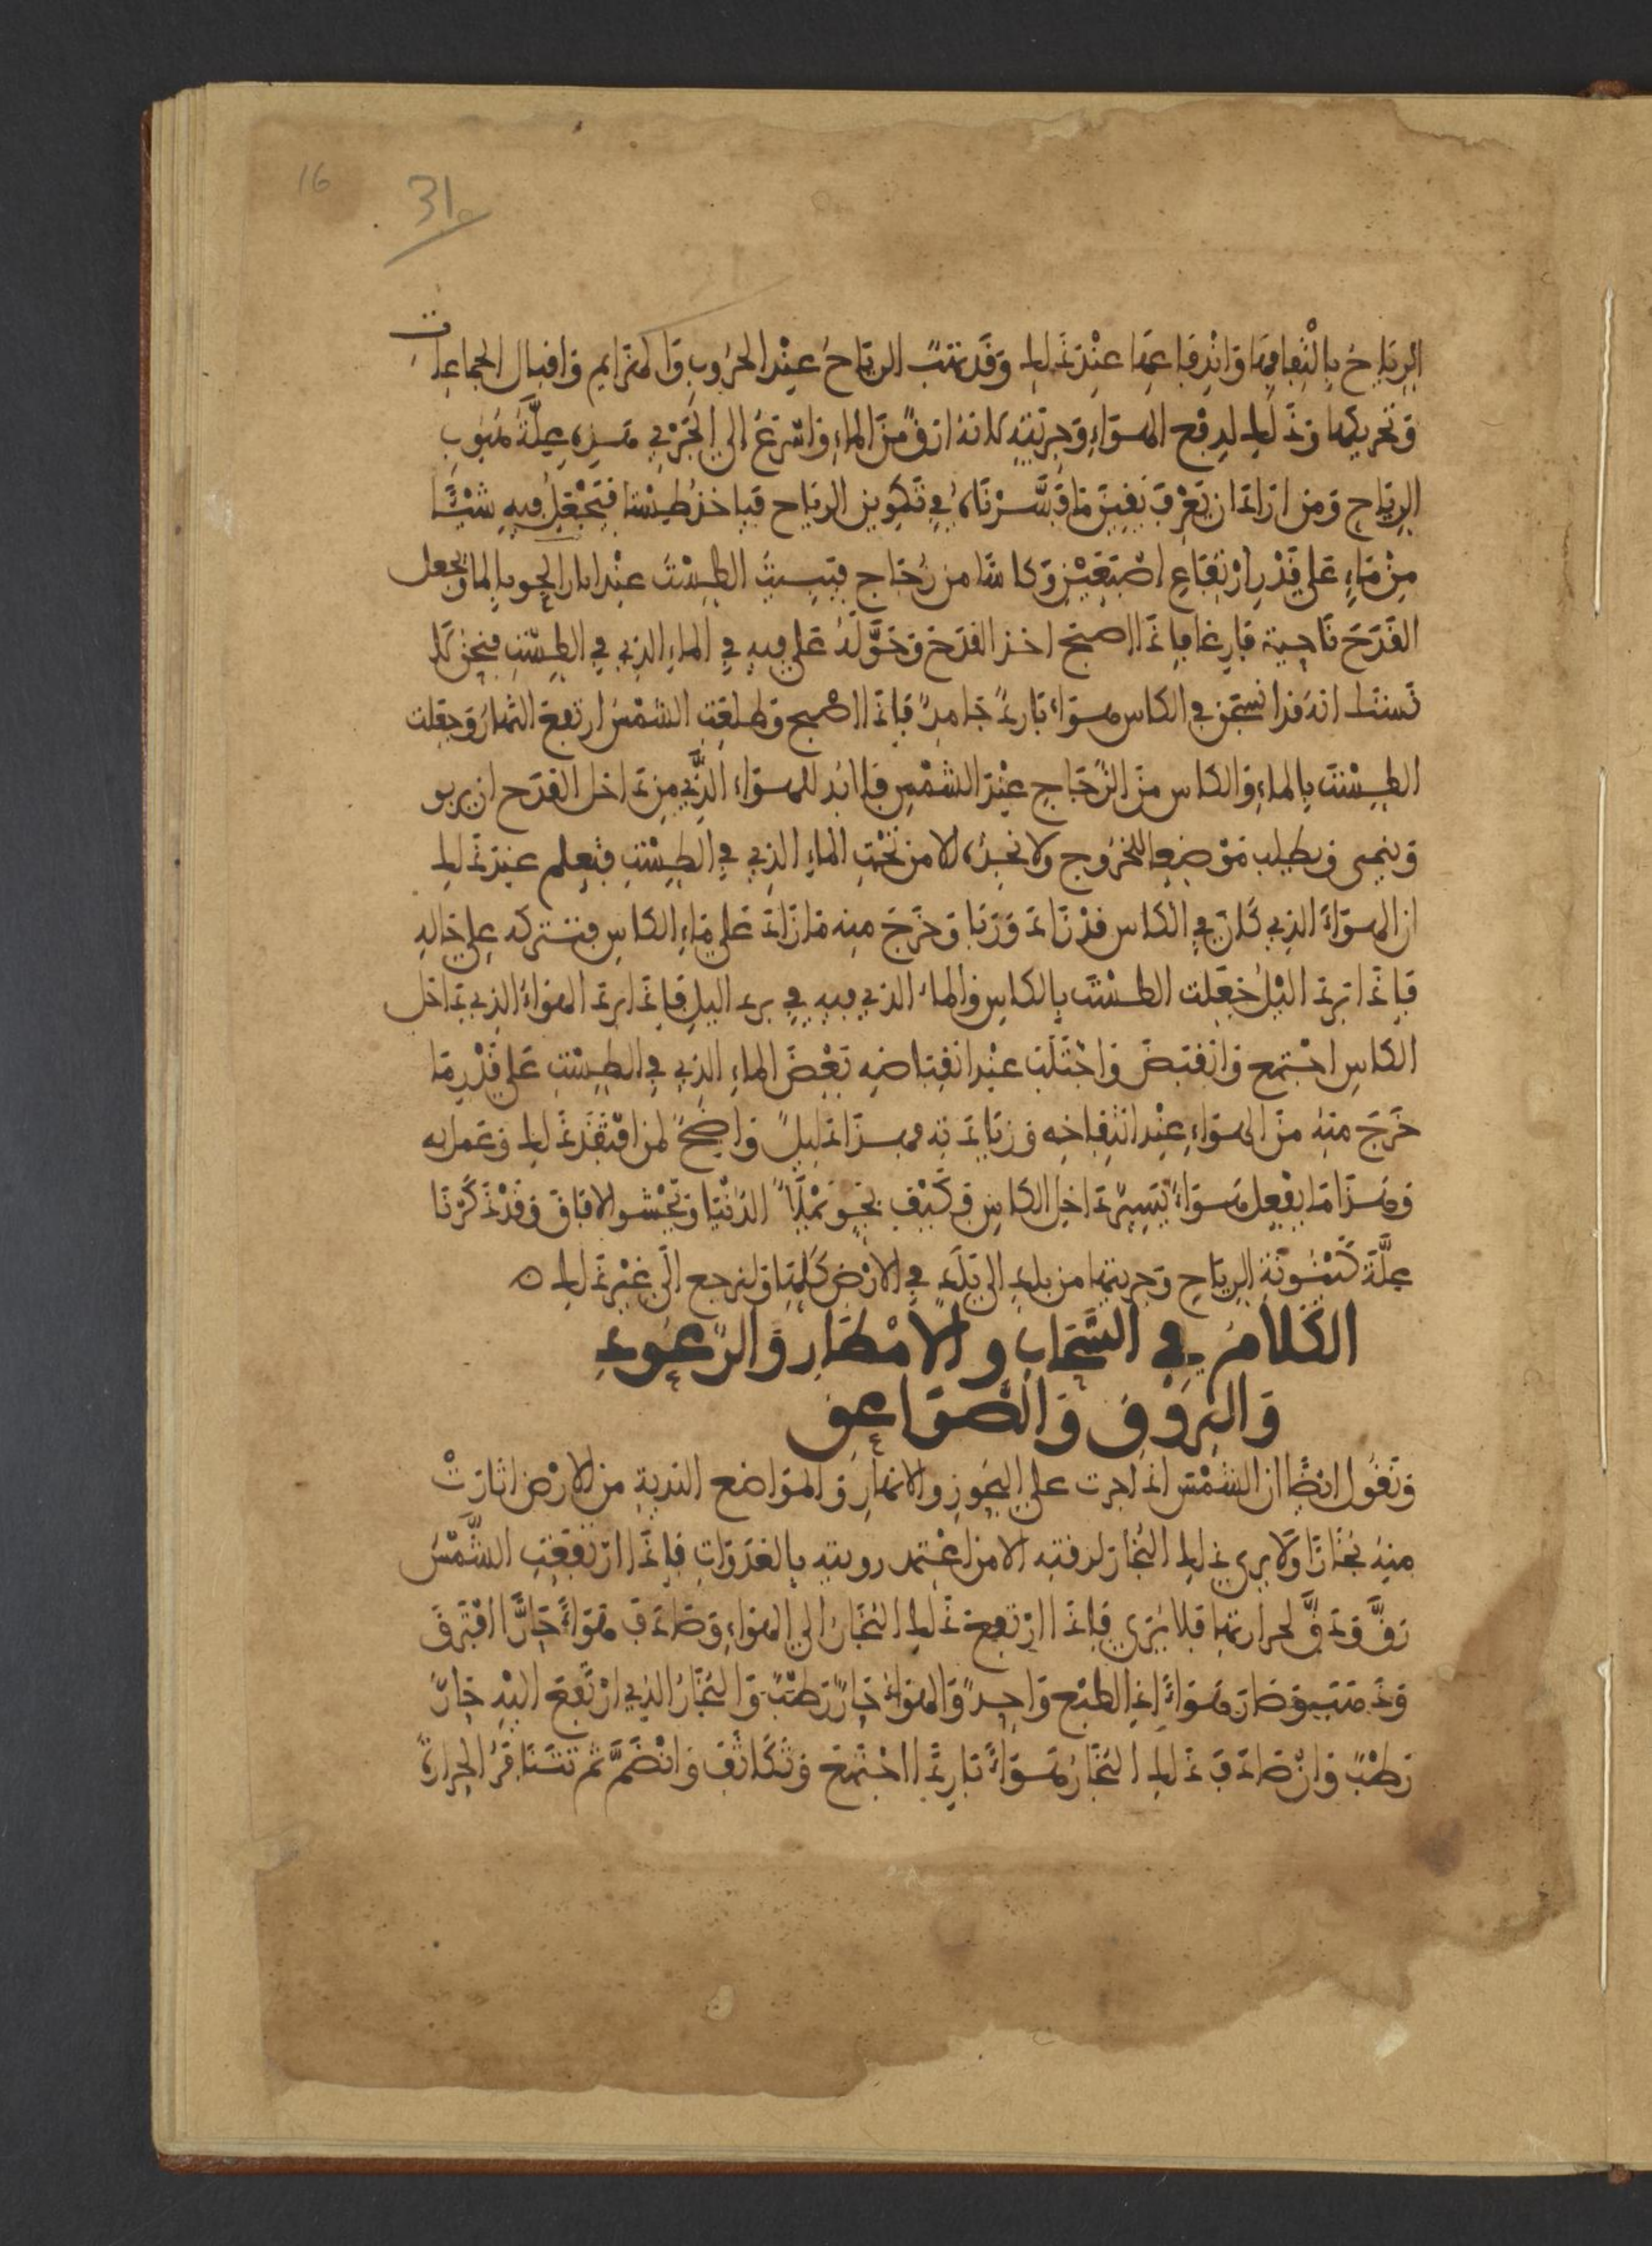 16
31
الرِيَاحُ بِالْتِفَافِهَا وَانْدِفَاعِهَا عِنْدَ ذَلِكَ وَقَد تَهُبُّ الرِيَاحُ عِنْدَ الحُرُوبِ وَالهَزَايمِ وَاقبال الجماعات
وَتحريكها وَذَلِكَ لِدفع الهَوَاءِ وَجِرْيَتِهِ لانهُ ارَقُّ مِنَ الماءِ وَاسْرَعُ الى الجَرْيِ فهَذِهِ عِلَّةُ هُبُوبِ
الرِيَاحِ وَمَن ارَادَ ان يَعْرِفَ يَقِينَ مَا فَسَّرْنَاهُ فِي تَكوِينِ الرياحِ فَياخذ طِسْتا فَيَجْعَلُ فِيهِ شَيْئًا
مِنْ مَاءٍ عَلى قَدْرِ ارْتفَاعِ اصْبَعَيْنِ وَكاسًا من زُجَاجِ فيبيتُ الطِسْتَ عِنْد الجو بالما ويجعل
القَدَحَ نَاحِية فَارِغا فاِذَا اصبح اخذ القَدَحَ وَحَوَّلَهُ عَلى فِيهِ فِي الماءِ الذِي فِي الطِسْتِ فنحن لا
نشك انه قد انسجن في الكاس هوَاءٌ بَارِدٌ جَامِدٌ فَاِذَا اصْبح وَطلعَتِ الشَمْسُ ارتفعَ النَهَارُ وَجعلت
الطِسْتَ بِالماءِ وَالكاس مِنَ الزُجَاجِ عِنْدَ الشَمْسِ فَلا بُد للهوَاءِ الَّذِي مِن دَاخل القدَحِ ان يربو
وَينمى وَيطلب مَوْضِعا للخُرُوجِ وَلا يَجِدُهُ الا من تَحْتِ الماءِ الذِي فِي الطِسْتِ فتعلم عند ذَلِكَ
ان الهوَاءَ الذِي كَانَ فِي الكاس قدْ زَادَ وَرَبَا وَخَرَجَ منه مَا زَادَ عَلى مَاءِ الكاسِ فتتركه عَلى حَالِهِ
فَاِذَا بَرَدَ اليْلُ جَعَلت الطسْتَ بِالكاسِ وَالماءُ الذي فِيهِ فِي برد اليلِ فَاِذَا برَدَ الهوَاءُ الذِي دَاخل
الكاسِ اجْتمع وَانْقبَضَ وَاجْتَلَبَ عِنْد انقِبَاضِهِ بَعْضَ الماءِ الذِي فِي الطِسْتِ عَلى قَدْرِ مَا
خَرَجَ مِنْهُ مِنَ الهوَاءِ عِنْد انْتِفَاخِهِ وَزيَادَتِهِ فهذَا دَلِيلٌ وَاضِحٌ لمن افتَقَدَ ذَلِكَ وَعَمل به
وَهذَا مَا يفْعل هوَاءٌ يَسِيرٌ دَاخل الكاسِ فَكَيْفِ بجَوٍ يَمْلَأُ الدُنْيَا وَيَحْشو الافَاقَ وَقَدْ ذَكَرْنَا
عِلَّةَ كَيْنُونَةِ الرِيَاحِ وَجريتِها من بلدٍ الى بَلَدٍ فِي الارْضِ كُلِهَا وَلنرجع الَى غَيْرِ ذَلِكَ ه
الكَلامُ فِي السَّحَابِ وَالامْطَارِ وَالرُعُودِ
وَالبُرُوقِ وَالصَّوَاعِقِ
وَنَقُول ايْضًا ان الشَمْسَ اِذَا جرت عَلى البُحُورِ وَالانهَارِ وَالموَاضع النديةِ من الارْضِ اثَارَتْ
مِنهُ بُخَارًا وَلَا يرى ذَلِكَ البُخَارَ لرقتِهِ الا من اعْتمد رويتِهِ بِالغَدَوَاتِ فَاِذَا ارْتفعَتِ الشَّمْسُ
رَقَّ وَدَقَّ لحرارتهَا فلا يُرَى فَاِذَا ارْتفعَ ذَلِكَ البُخَارُ الى الهوَاءِ وَصَادَفَ هَوَاءً حَارًّا افْتَرَقَ
وَذهَبَ وَصَارَ هوَاءً اِذِ الطبْع وَاحِدٌ وَالهوَاءُ حَارٌ رَطْبٌ وَالبُخَارُ الذِي ارْتَفَعَ اليْهِ حَارٌّ
رَطْبٌ وَانْ صَادَفَ ذَلِكَ البُخَارُ هوَاءً بَارِدًا اجْتَمَعَ وَتَكَاثَفَ وَانْضَمَّ ثم تَتنَافَرُ الحِرارةُ